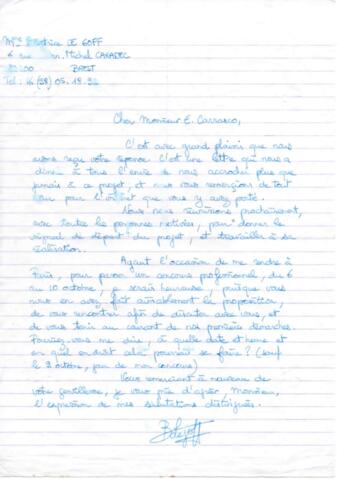 LE GOFF
6 rue Michel CARADEC
BREST
Cher Monsieur E. Carrasco,
C'est avec grand plaisir que nous
avons reçu votre réponse. C'est une lettre qui nous a
donné à tous l'envie de nous accrocher plus que
jamais à ce projet, et nous vous remercions de tout
pour l'intérêt que vous y avez porté.
Nous nous réunissons prochainement,
avec toutes les personnes motivées, pour "donner le
signal de départ" du projet, et travailler à sa
réalisation.
Ayant l'occasion de me rendre à
Paris, pour passer un concours professionnel, du 6
au 10 octobre, je serais heureuse, puisque vous
nous en avez fait aimablement la proposition,
de vous rencontrer afin de discuter avec vous, et
de vous tenir au courant de nos premières démarches.
Pouvez-vous me dire, à quelle date et heure et
en quel endroit cela pourrait se faire ? (sauf
le octobre, jour de mon concours)
Vous remerciant à nouveau de
votre gentillesse, je vous prie d'agréer, Monsieur,
l'expression de mes salutations distinguées.
BLegoff